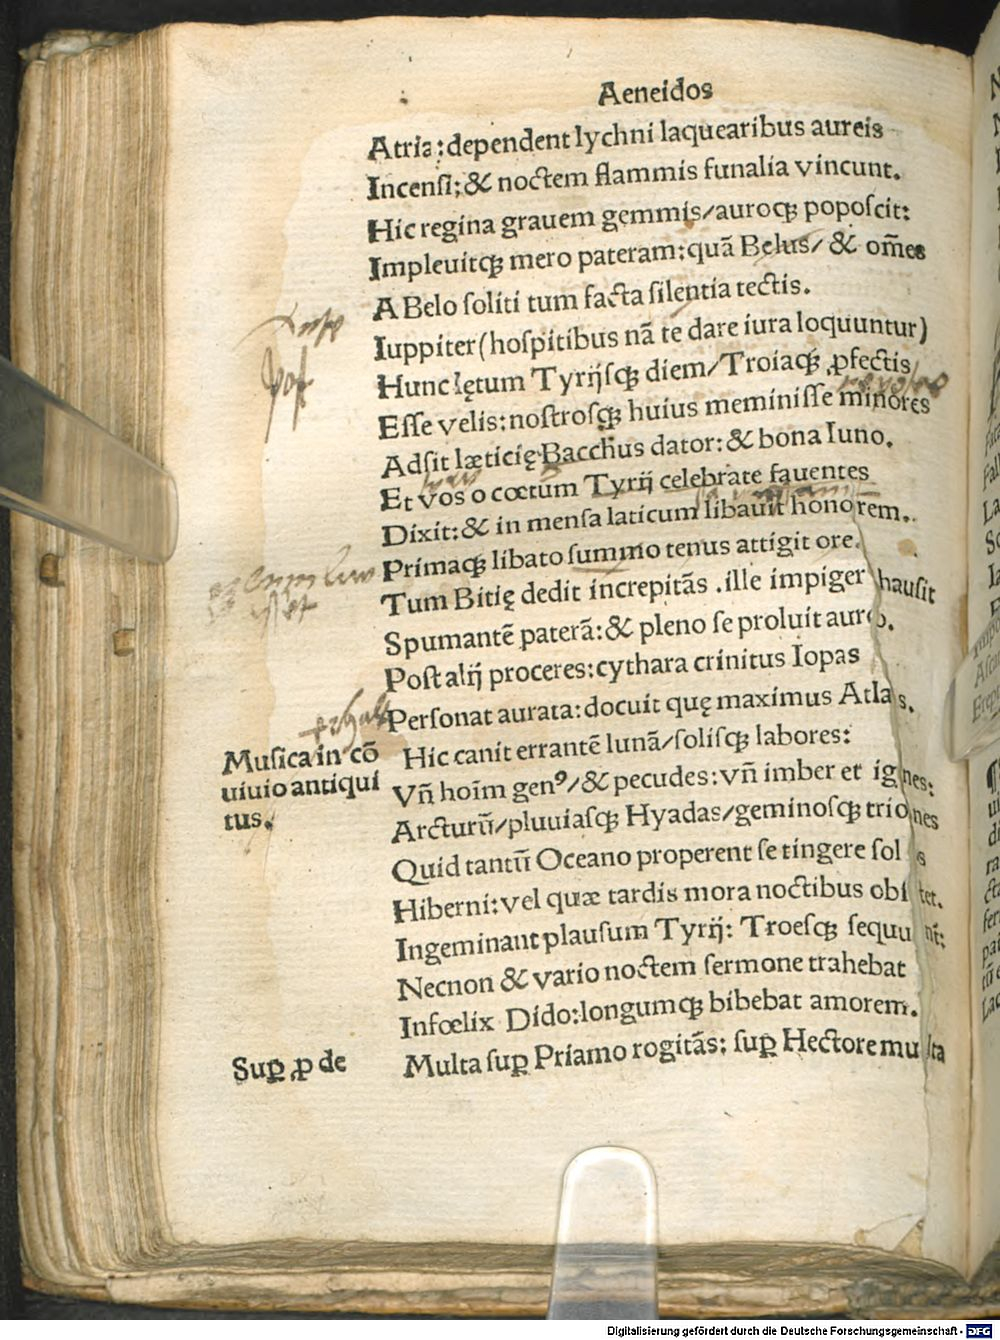 Aeneidos
Atria:dependent lychni laquearibus aureis
Incenſi;& noctem flammis funalia vincunt.
Hic regina grauem gemmis/auroqꝫ popoſcit:
Impleuitqꝫ mero pateram:quā Belus/ & om̄es
A Belo ſoliti tum facta ſilentia tectis.
Iuppiter(hoſpitibus nā te dare iura loquuntur)
Hunc lętum Tyrijſqꝫ diem/Troiaqꝫ ꝓfectis
Eſſe velis:noſtroſqꝫ huius meminiſſe minores
Adſit læticię Bacchus dator:& bona Iuno.
Et vos o cœtum Tyrij celebrate fauentes
Dixit:& in menſa laticum libauit honorem.
Primaqꝫ libato ſummo tenus attigit ore.
Tum Bitię dedit increpitās .ille impiger hauſit
Spumantē paterā:& pleno ſe proluit auro.
Poſt alij proceres:cythara crinitus Iopas
Perſonat aurata:docuit quę maximus Atlas.
Muſica in cō
uiuio antiqui
tus.
Hic canit errantē lunā/ſoliſqꝫ labores:
Vn̄ hoīm genꝰ/& pecudes:vn̄ imber et ignes:
Arcturū/pluuiaſqꝫ Hyadas/geminoſqꝫ triones
Quid tantū Oceano properent ſe tingere ſoles
Hiberni:vel quæ tardis mora noctibus obſtet.
Ingeminant plauſum Tyrij: Troeſqꝫ ſequunt̄:
Necnon & vario noctem ſermone trahebat
Infœlix Dido:longumqꝫ bibebat amorem.
Sup̱ ꝓ de
Multa ſup̱ Priamo rogitās: ſup̱ Hectore multa
Digitalisierung gefördert durch die Deutsche Forschungsgemeinschaft - DFG